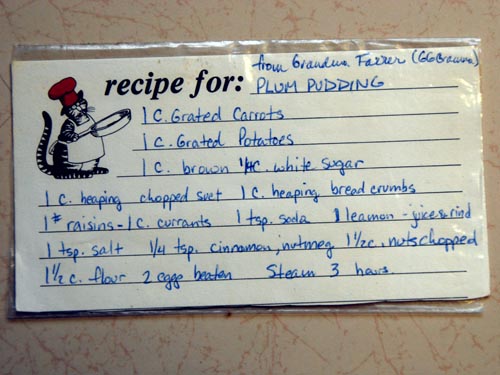 from Grandma Farrer (GGGramma)
recipe for: PLUM PUDDING
1 C. Grated Carrots
1 C. Grated Potatoes
1 C. brown 1/4 C. white sugar
1 c. heaping chopped suet 1 C. heaping bread crumbs
1# raisins - 1 c. currants 1 tsp. soda 1 leamon - juice & rind
1 tsp. salt 1/4 tsp. cinnamon, nutmeg 1 1/2 c. nuts chopped
1 1/2 c. flour 2 eggs beaten Steam 3 hours.